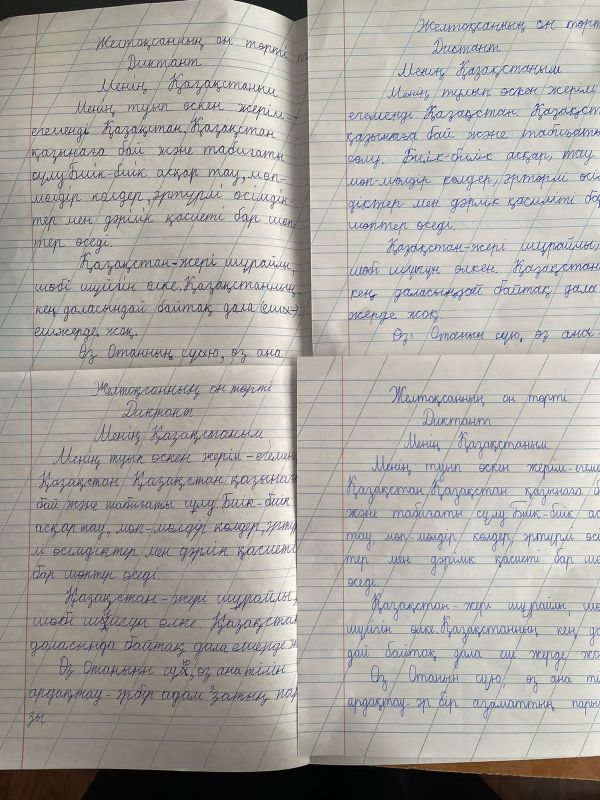 Желтоқсанның он төрті
Диктант
Менің Қазақстаным
Менің туып өскен жерім-
егеменді Қазақстан. Қазақстан
қазынаға бай және табиғаты
сұлу. Биік-биік асқар тау, мөп-
мөлдір көлдер, әртүрлі өсімдік-
тер мен дәрілік қасиеті бар шөп-
тер өседі.
Қазақстан-жері шұрайлы,
шөбі шүйгін өлке. Қазақстанның
кең даласындай байтақ дала
еш жерде жоқ.
Өз Отанның сүю, өз ана
Желтоқсанның он төрт
Диктант
Менің Қазақстаным
Менің туып өскен жерім
егеменді Қазақстан. Қазақст
қазынаға бай және табиғаты
сөлу. Биік-билік асқар, тау.
мөп-мөлдір көлдер, әртөрлі өсі
діктер мен дәрлік қасиеті ба
шөптер өседі.
Қазақстан-жері шұрайлы,
шөбі шүйгүн өлкен. Қазақстан
кең даласындай байтақ дала
жерде жоқ.
Өз Отанын сүю, өз ана-
Желтоқсанның он төрті
Диктант
Менің Қазақстаным
Менің туып өскен жерім-егемен
Қазақстан Қазақстан қазынаға
бай және табиғаты сұлу. Биік-биік
асқар тау, мөп-мөлдір көлдер, әртү
л өсімдіктер мен дәрлік қасиеті
бар шөптер өседі.
Қазақстан-жері шұрайлы,
шөбі шүйгүн өлке. Қазақстан
даласында байтақ дала емен де ж
Өз Отанынн сүю, өз ана тілін
ардақтау-әрбір адам затың пар
зы
Желтоқсанның он төрті.
Диктант
Менің Қазақстаным
Менің туып өскен жерім-егем
Қазақстан. Қазақстан қазынаға б
және табиғаты сұлу. Биік-биік ас
тау, мөп-мөлдір көлдер, әртүрлі өсі
тер мен дәрілік қасиеті бар шө
өседі.
Қазақстан-жері шұрайлн, шө
шүйгін өлке. Қазақстанның кең да
дай байтақ дала еш жерде жо
Өз Отанын сүю, өз ана ті
ардақтау-әр бір азаматтың парь